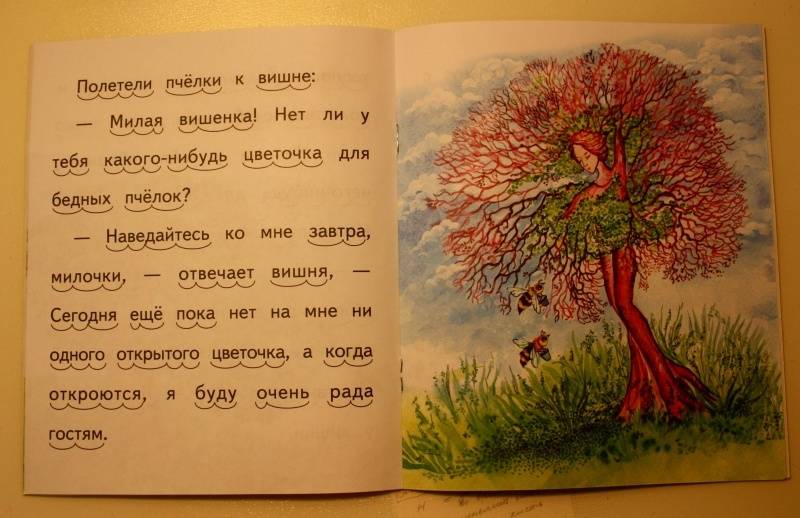 Полетели пчёлки к вишне:
— Милая вишенка! Нет ли у
тебя какого-нибудь цветочка для
бедных пчёлок?
— Наведайтесь ко мне завтра,
милочки, — отвечает вишня, —
Сегодня ещё пока нет на мне ни
одного открытого цветочка, а когда
откроются, я буду очень рада
гостям.